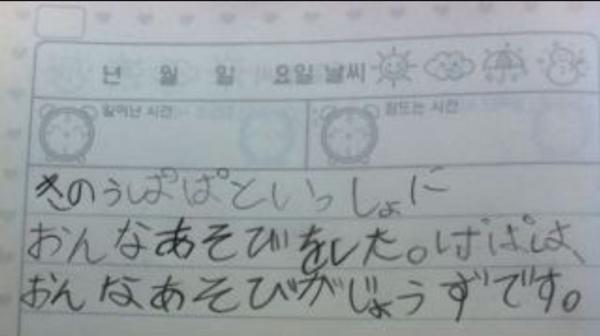 년 월 일 요일 날씨
일어난 시간 잠드는 시간
きのうぱぱといっしょに
おんなあそびをした。ぱぱは、
おんなあそびがじょうずです。